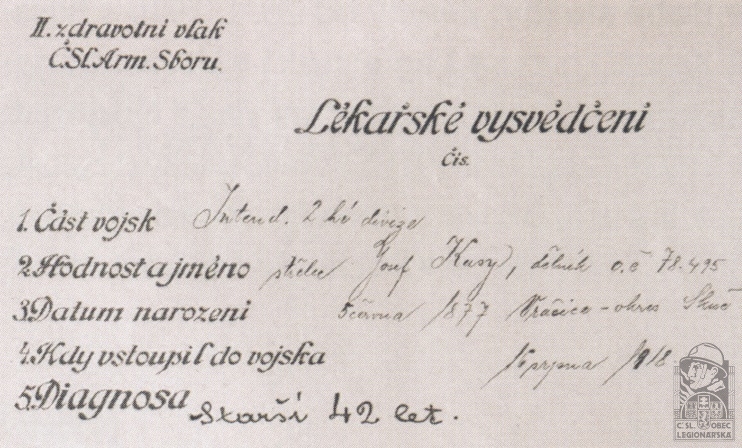 II. zdravotni vlak
Č.Sl. Arm. Sboru.
Lékařské vysvědčeni
Čís.
1. Část vojsk Intend. 2 hé divize
2. Hodnost a jméno střelec Josef Kasy, dělník o.č 78.495
3. Datum narozeni 5 června 1877 - okres
4. Kdy vstoupil do vojska srpna 1918
5. Diagnosa Starší 42 let.
Č SL. OBEC
LEGIONÁŘSKÁ